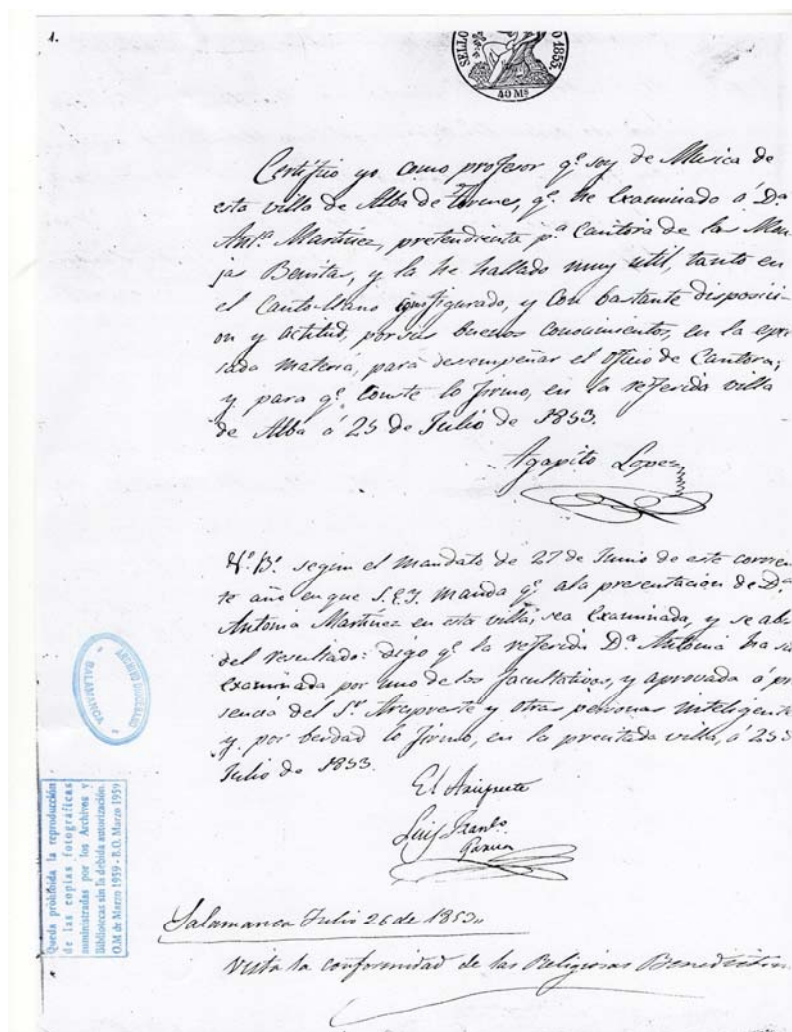 1.
SELLO
O 1853.
40 Ms
Certifico yo como profesor qe. soy de Musica de
esta villa de Alba de Tormes, qe. he Examinado á Da.
Anta. Martinez, pretendienta pa. Cantora de las Mon
jas Benitas, y la he hallado muy util, tanto en
el Canto-llano figurado, y Con bastante disposici-
on y actitud, por sus buenos Conocimientos, en la epre
sada materia, para desempeñar el oficio de Cantora;
y para qe. Conste lo firmo, en la referida villa
de Alba á 25 de Julio de 1853.
Agapito Lopez
Vo. Bo. segun el mandato de 27 de Junio de este corrien
te año en que S.E.Y. manda qe. ala presentacion de Da.
Antonia Martinez en esta villa, sea Examinada, y se
del resultado: digo qe. la referida Da. Antonia ha
Examinada por uno de los facultativos, y aprovada á pre
sencia del Sr. Arcipreste y otras personas inteligente
y por berdad lo firmo, en la precitada villa, á 25
Julio de 1853.
El Arcipreste
Luis
Garcia
Salamanca Julio 26 de 1853
Vista la conformidad de las Religiosas Benedictin
ARCHIVO DIOCESANO
SALAMANCA
Queda prohibida la reproducción
de las copias fotográficas
suministradas por los Archivos y
Bibliotecas sin la debida autorización.
O.M de Marzo 1959 - B.O. Marzo 1959